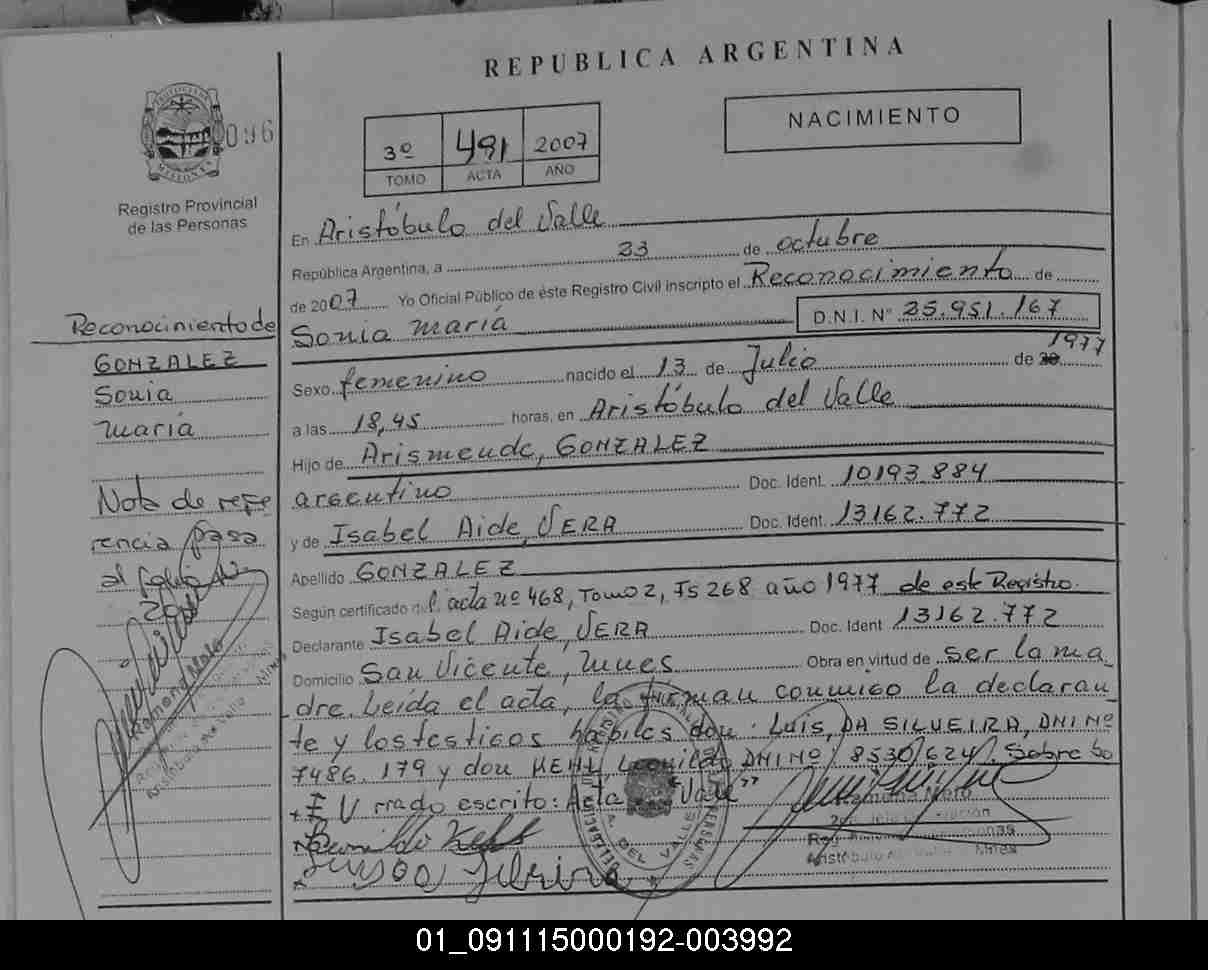 REPUBLICA ARGENTINA
096
NACIMIENTO
3º 491 2007
TOMO ACTA AÑO
Registro Provincial
de las Personas
En Aristóbulo del Valle
República Argentina, a 23 de octubre
de 2007 Yo Oficial Público de éste Registro Civil inscripto el Reconocimiento de
Sonia María D.N.I. Nº 25.951.167
Sexo femenino nacido el 13 de Julio de 1977
a las 18,45 horas, en Aristóbulo del Valle
Hijo de Arismende, GONZALEZ
argentino Doc. Ident. 10193.884
y de Isabel Aide, VERA Doc. Ident. 13162.772
Apellido GONZALEZ
Según certificado acta nº 468, Tomo 2, Fs 268 año 1977 de este Registro.
Declarante Isabel Aide, VERA Doc. Ident 13162.772
Domicilio San Vicente, Mnes Obra en virtud de ser la ma
dre. Leída el acta, la firman conmigo la declaran
te y los testigos hábiles don: Luis, DA SILVEIRA, DNI Nº
7486.179 y don KEHL, DNI Nº 8530624. Sobre bo
rrado escrito: Acta "Vale"
Reconocimiento de
GONZALEZ
Sonia
María
Nota de refe
rencia pasa
al folio
Ramona Melo
Aristóbulo del Valle Mnes
Ramona Melo
Aristóbulo del Valle - Mnes
DEL VALLE
01_091115000192-003992